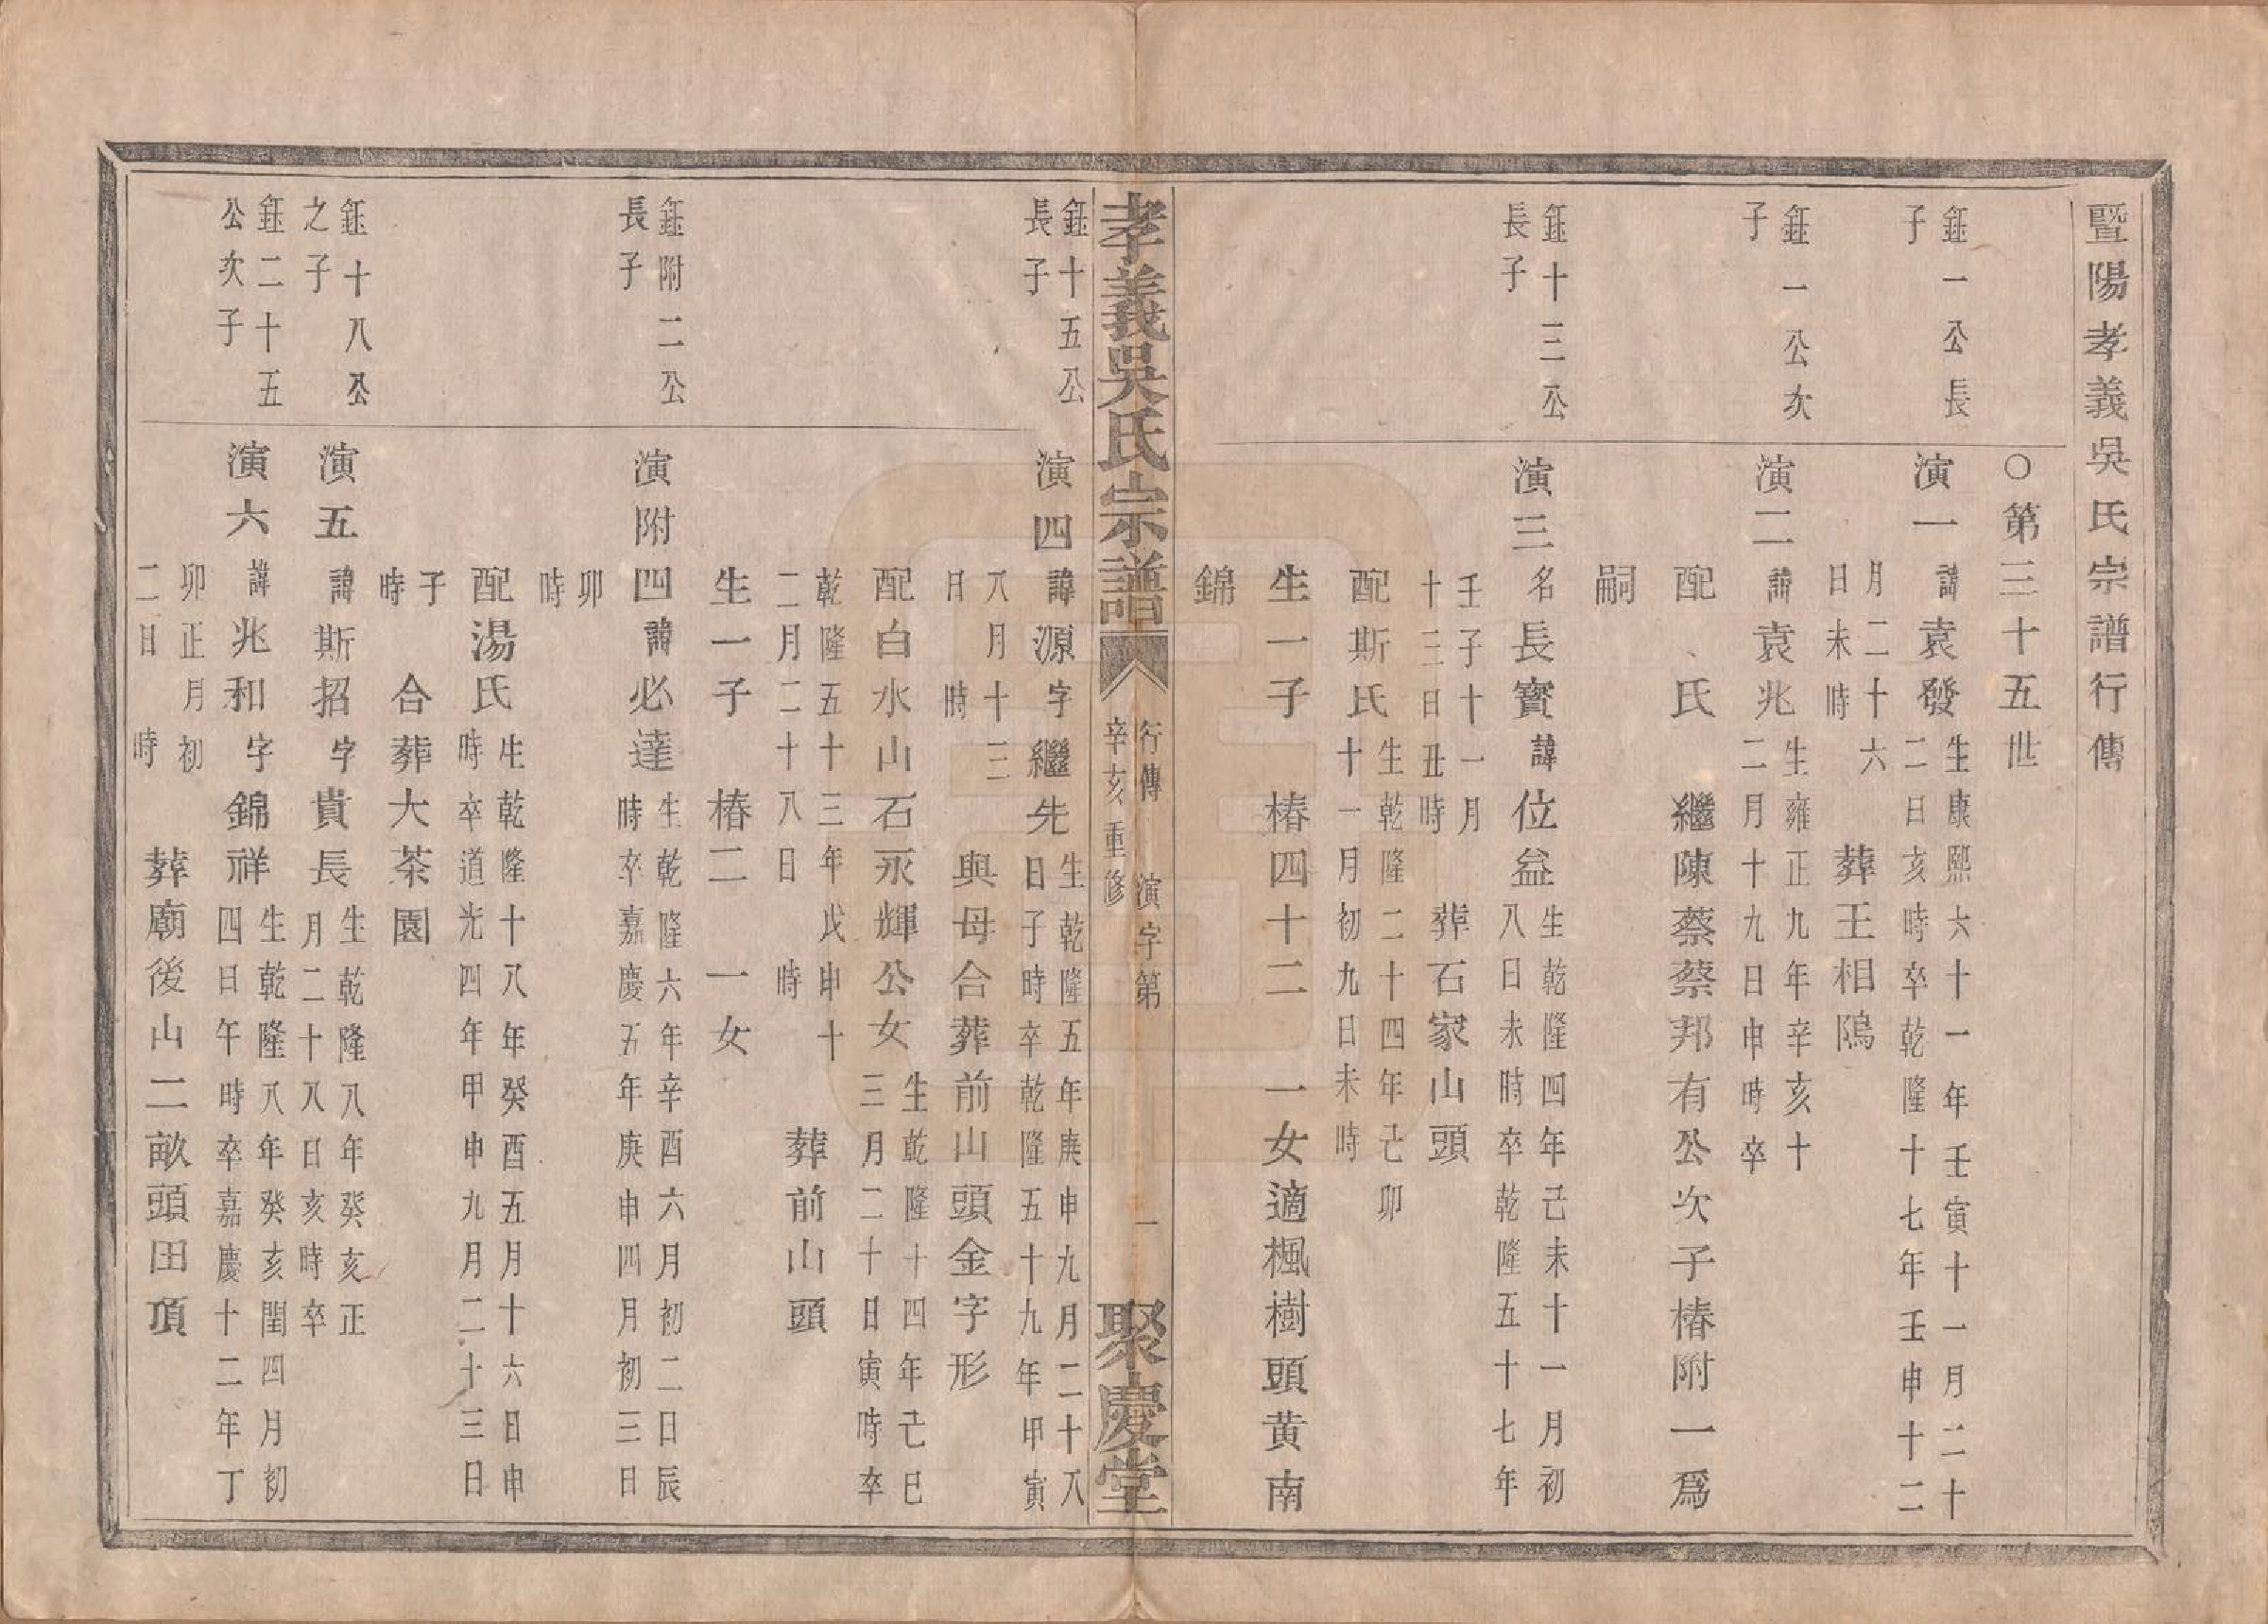 暨陽孝義吳氏宗譜行傳
○第三十五世
鈺一公長
子
演一諱袁發生康熙六十一年壬寅十一月二十
二日亥時卒乾隆十七年壬申十二
月二十六
日未時
葬王相隝
鈺一公次
子
演二諱袁兆生雍正九年辛亥十
二月十九日申時卒
配 氏 繼陳蔡蔡邦有公次子椿附一爲
嗣
鈺十三公
長子
演三名長寶諱位益生乾隆四年己未十一月初
八日未時卒乾隆五十七年
壬子十一月
十三日丑時
葬石家山頭
配斯氏生乾隆二十四年己卯
十一月初九日未時
生一子 椿四十二 一女適楓樹頭黄南
錦
孝義吳氏宗譜
行傳 演字第 一
辛亥重修
聚慶堂
鈺十五公
長子
演四諱源字繼先生乾隆五年庚申九月二十八
日子時卒乾隆五十九年甲寅
八月十三
日 時
與母合葬前山頭金字形
配白水山石永輝公女生乾隆十四年己巳
三月二十日寅時卒
乾隆五十三年戊申十
二月二十八日 時
葬前山頭
生一子 椿二 一女
鈺附二公
長子
演附四諱必達生乾隆六年辛酉六月初二日辰
時卒嘉慶五年庚申四月初三日
卯
時
配湯氏生乾隆十八年癸酉五月十六日申
時卒道光四年甲申九月二十三日
子
時
合葬大茶園
鈺十八公
之子
演五諱斯招字貴長生乾隆八年癸亥正
月二十八日亥時卒
鈺二十五
公次子
演六諱兆和字錦祥生乾隆八年癸亥閏四月初
四日午時卒嘉慶十二年丁
卯正月初
二日 時
葬廟後山二畝頭田頂